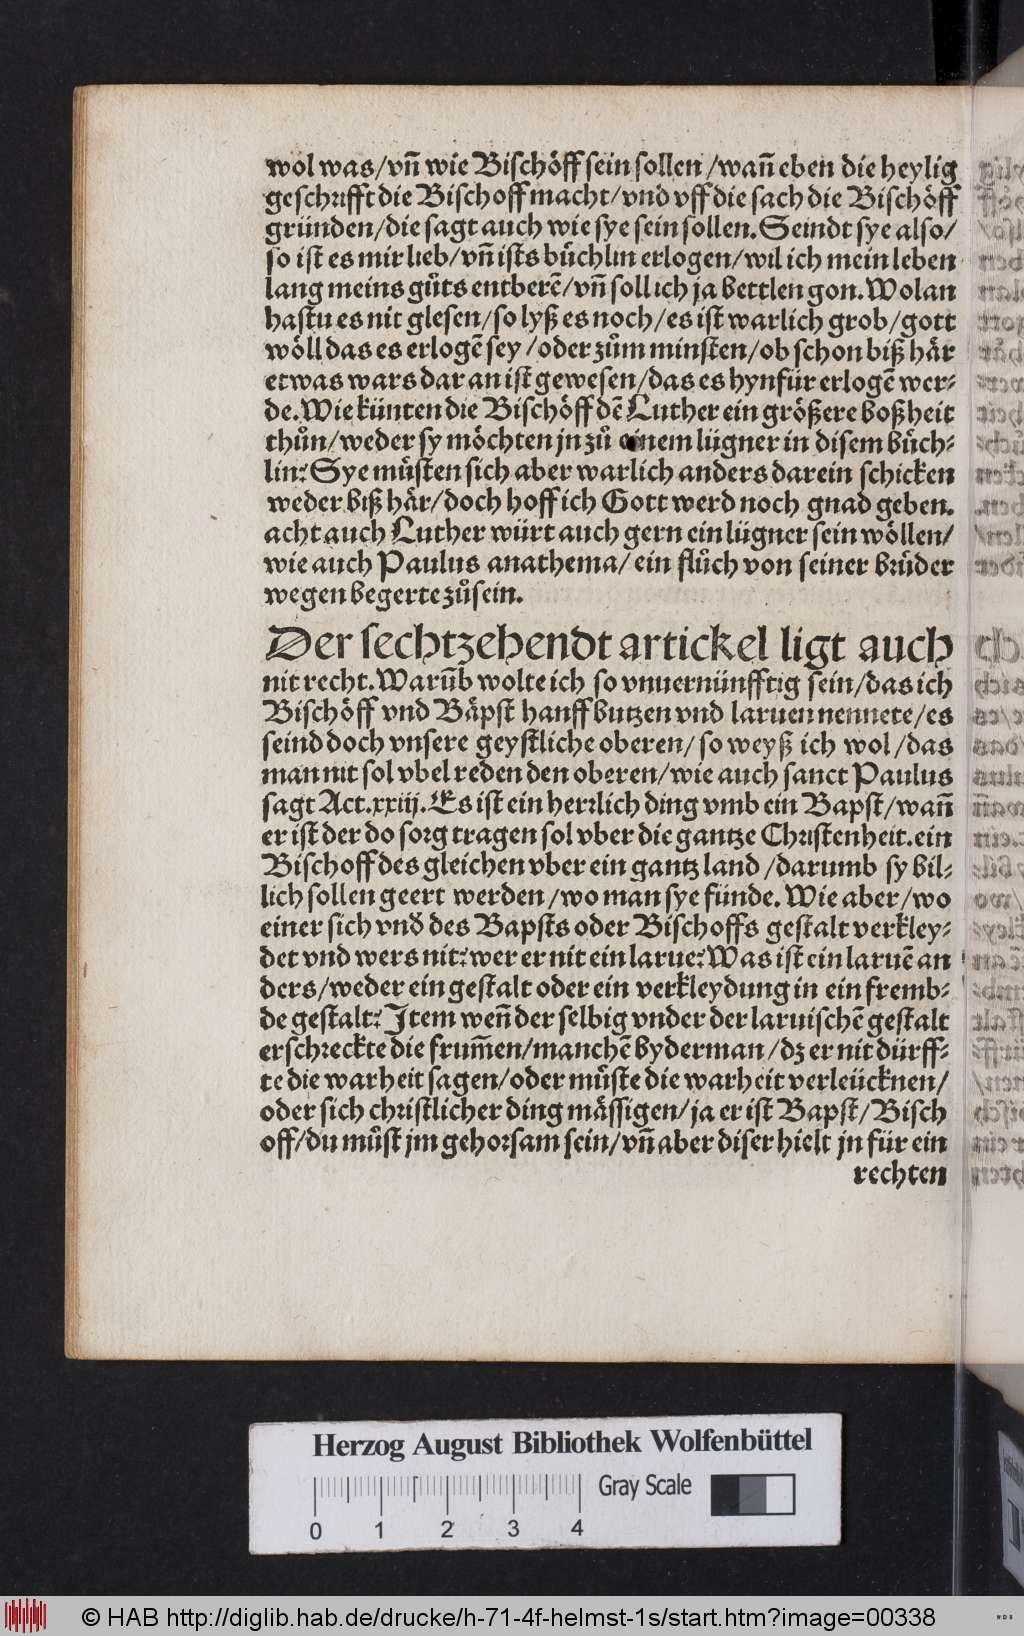 wol was/ vñ wie Bischöff sein sollen / wañ eben die heylig
geschrifft die Bischoff macht/ vnd vff die sach die Bischöff
gründen/ die sagt auch wie sye sein sollen. Seindt sye also/
so ist es mir lieb/ vñ ists bůchlin erlogen/ wil ich mein leben
lang meins gůts entberẽ/ vñ soll ich ja bettlen gon. Wolan
hastu es nit glesen/ so lyß es noch/ es ist warlich grob/ gott
wöll das es erlogẽ sey / oder zům minsten/ ob schon biß här
etwas wars dar an ist gewesen/ das es hynfür erlogẽ wer⸗
de. Wie künten die Bischöff dẽ Luther ein größere boßheit
thůn/ weder sy möchten jn zů einem lügner in disem bůch⸗
lin? Sye můsten sich aber warlich anders darein schicken
weder biß här/ doch hoff ich Gott werd noch gnad geben.
acht auch Luther würt auch gern ein lügner sein wöllen/
wie auch Paulus anathema/ ein flůch von seiner brüder
wegen begerte zůsein.
Der sechtzehendt artickel ligt auch
nit recht. Warũb wolte ich so vnuernünfftig sein/ das ich
Bischöff vnd Bäpst hanff butzen vnd laruen nennete/ es
seind doch vnsere geystliche oberen/ so weyß ich wol / das
man nit sol vbel reden den oberen/ wie auch sanct Paulus
sagt Act. xxiij. Es ist ein herrlich ding vmb ein Bapst/ wañ
er ist der do sorg tragen sol vber die gantze Christenheit. ein
Bischoff des gleichen vber ein gantz land / darumb sy bil⸗
lich sollen geert werden / wo man sye fünde. Wie aber/ wo
einer sich vnđ des Bapsts oder Bischoffs gestalt verkley⸗
det vnd wers nit? wer er nit ein larue? Was ist ein laruẽ an
ders/ weder ein gestalt oder ein verkleydung in ein fremb⸗
de gestalt? Item weñ der selbig vnder der laruischẽ gestalt
erschreckte die frum̃en/ manchẽ byderman / dz er nit dürff⸗
te die warheit sagen/ oder můste die warheit verleücknen/
oder sich christlicher ding mässigen/ ja er ist Bapst/ Bisch
off/ du můst jm gehorsam sein/ vñ aber diser hielt jn für ein
rechten
Herzog August Bibliothek Wolfenbüttel
Gray Scale
0 1 2 3 4
© HAB http://diglib.hab.de/drucke/h-71-4f-helmst-1s/start.htm?image=00338